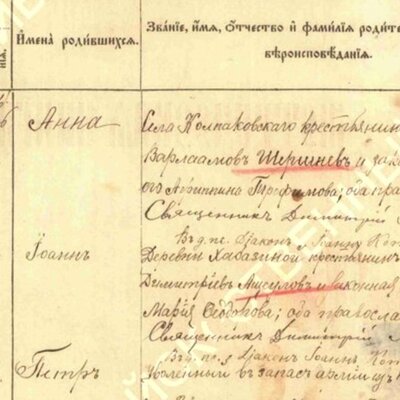 Имена родившихся.
Званіе, имя, отчество и фамилія родите
вѣроисповѣданія.
Анна
Села Колпаковскаго крестьянин
Варлаамовъ Шершневъ и зак
его Агриппина Трофимова; оба пра
Священникъ Димитрій
Іоаннъ
Діаконъ Іоаннъ
Деревни Хабазиной крестьянин
Димитріевъ и законная
Марія Ѳеодорова; оба правосла
Священникъ Димитрій
Петръ
Діаконъ Іоаннъ
Уволенный въ запасъ арміи